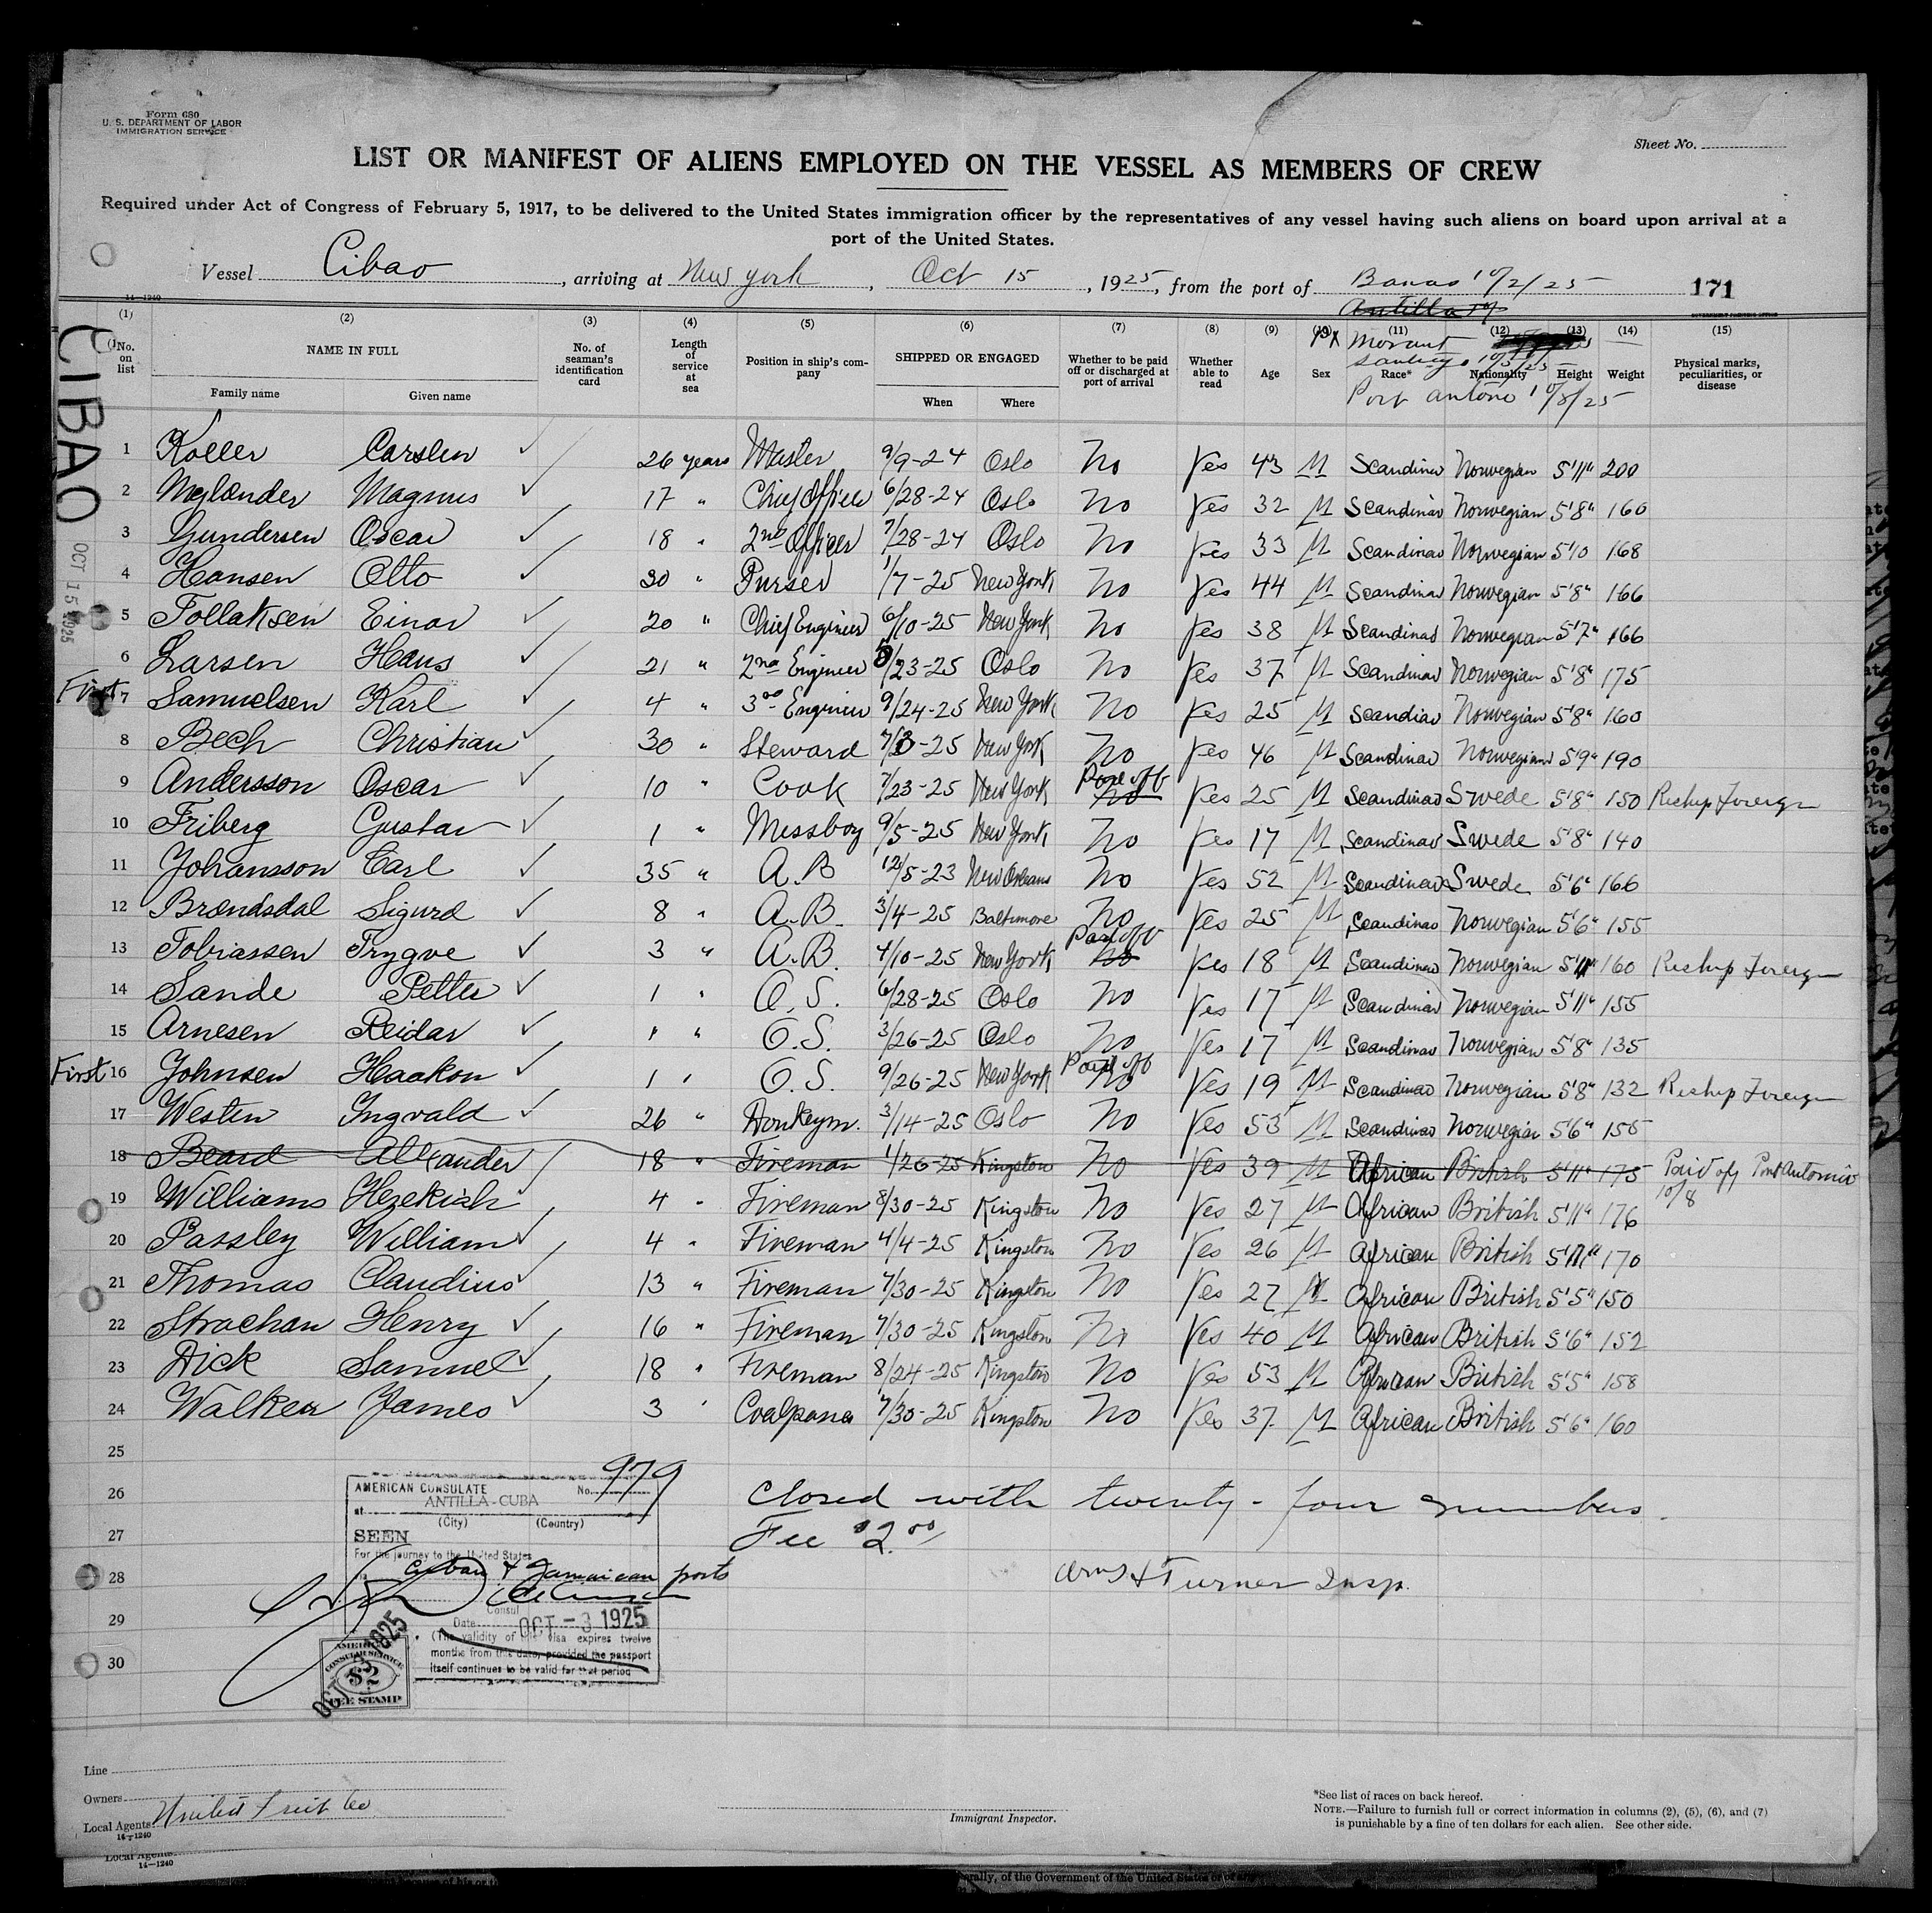 Form 680
U. S. DEPARTMENT OF LABOR
IMMIGRATION SERVICE
Sheet No.
LIST OR MANIFEST OF ALIENS EMPLOYED ON THE VESSEL AS MEMBERS OF CREW
Required under Act of Congress of February 5, 1917, to be delivered to the United States immigration officer by the representatives of any vessel having such aliens on board upon arrival at a
port of the United States.
Vessel Cibao, arriving at New York, Oct 15, 1925, from the port of Banes 10/2/25
171
14—1240
Antilla
Morant
Port Antonio 10/8/25
CIBAO
OCT 15 1925
(1) (2) (3) (4) (5) (6) (7) (8) (9) (10) (11) (12) (13) (14) (15)
No. on list
NAME IN FULL
Family name Given name
No. of seaman's identification card
Length of service at sea
Position in ship's company
SHIPPED OR ENGAGED
When Where
Whether to be paid off or discharged at port of arrival
Whether able to read
Age
Sex
Race*
Nationality
Height
Weight
Physical marks, peculiarities, or disease
1 Koller Carsten ✓ 26 years Master 9/9-24 Oslo No Yes 43 M Scandinav Norwegian 5'11" 200
2 Mylander Magnus ✓ 17 " Chief Officer 6/28-24 Oslo No Yes 32 M Scandinav Norwegian 5'8" 160
3 Gundersen Oscar ✓ 18 " 2nd Officer 7/28-24 Oslo No Yes 33 M Scandinav Norwegian 5'10 168
4 Hansen Otto ✓ 30 " Purser 1/7-25 New York No Yes 44 M Scandinav Norwegian 5'8" 166
5 Tollaksen Einar ✓ 20 " Chief Engineer 6/10-25 New York No Yes 38 M Scandinav Norwegian 5'7" 166
6 Larsen Hans ✓ 21 " 2nd Engineer /23-25 Oslo No Yes 37 M Scandinav Norwegian 5'8" 175
First 7 Samuelsen Karl ✓ 4 " 3rd Engineer 9/24-25 New York No Yes 25 M Scandiav Norwegian 5'8" 160
8 Bech Christian ✓ 30 " Steward 7/-25 New York No Yes 46 M Scandinav Norwegian 5'9" 190
9 Andersson Oscar ✓ 10 " Cook 7/23-25 New York No Paid off Yes 25 M Scandinav Swede 5'8" 150 Reship Foreign
10 Friberg Gustav ✓ 1 " Messboy 9/5-25 New York No Yes 17 M Scandinav Swede 5'8" 140
11 Johansson Carl ✓ 35 " A.B 12/5-23 New Orleans No Yes 52 M Scandinav Swede 5'6" 166
12 Brondsdal Sigurd ✓ 8 " A.B. 3/4-25 Baltimore No Yes 25 M Scandinav Norwegian 5'6" 155
13 Tobiassen Trygve ✓ 3 " A.B. 4/10-25 New York No Paid off Yes 18 M Scandinav Norwegian 5'11" 160 Reship Foreign
14 Sande Petter ✓ 1 " O.S. 6/28-25 Oslo No Yes 17 M Scandinav Norwegian 5'11" 155
15 Arnesen Reidar ✓ " " O.S. 3/26-25 Oslo No Yes 17 M Scandinav Norwegian 5'8" 135
First 16 Johnsen Haakon ✓ 1 " O.S. 9/26-25 New York No Paid off Yes 19 M Scandinav Norwegian 5'8" 132 Reship Foreign
17 Westin Ingvald ✓ 26 " Donkeym. 3/14-25 Oslo No Yes 53 M Scandinav Norwegian 5'6" 155
18 Beard Alexander 18 " Fireman 1/26-25 Kingston No Yes 39 M African British 5'11" 175 Paid off Port Antonio 10/8
19 Williams Hezekiah ✓ 4 " Fireman 8/30-25 Kingston No Yes 27 M African British 5'11" 176
20 Passley William ✓ 4 " Fireman 4/4-25 Kingston No Yes 26 M African British 5'11" 170
21 Thomas Claudius ✓ 13 " Fireman 7/30-25 Kingston No Yes 27 M African British 5'5" 150
22 Strachan Henry ✓ 16 " Fireman 7/30-25 Kingston No Yes 40 M African British 5'6" 152
23 Dick Samuel ✓ 18 " Fireman 8/24-25 Kingston No Yes 53 M African British 5'5" 158
24 Walker James ✓ 3 " Coalpasser 7/30-25 Kingston No Yes 37 M African British 5'6" 160
25
26
27
28
29
30
Closed with twenty-four numbers.
Fee $2.00
Turner Insp.
AMERICAN CONSULATE No. 979
at ANTILLA-CUBA
(City) (Country)
SEEN
For the journey to the United States
Cuban & Jamaican ports
Consul
Date OCT -3 1925
(The validity of this visa expires twelve
months from this date, provided the passport
itself continues to be valid for that period
AMERICAN
CONSULAR SERVICE
$2
FEE STAMP
Line
Owners
Local Agents United Fruit Co
14—1240
Immigrant Inspector.
*See list of races on back hereof.
NOTE.—Failure to furnish full or correct information in columns (2), (5), (6), and (7)
is punishable by a fine of ten dollars for each alien. See other side.
Local Agents
14—1240